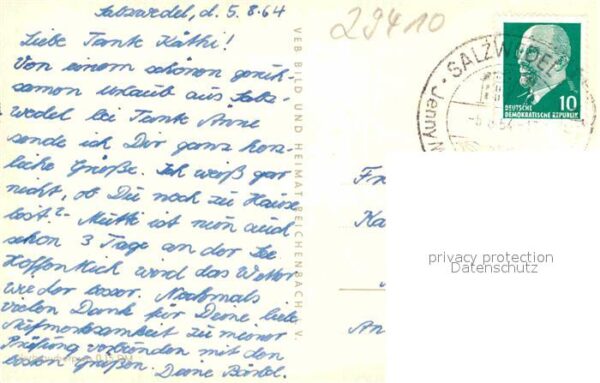 Salzwedel, d. 5.8.64
29410
Liebe Tante Käthi!
Von einem schönen geruh-
samen Urlaub aus Salz-
wedel bei Tante Änne
sende ich Dir ganz herz-
liche Grüße. Ich weiß gar
nicht, ob Du noch zu Hause
bist? - Mutti ist nun auch
schon 3 Tage an der See
Hoffentlich wird das Wetter
wieder besser. Nochmals
vielen Dank für Deine liebe
Aufmerksamkeit zu meiner
Prüfung verbunden mit den
besten Grüßen. Deine Bärbel.
VEB BILD UND HEIMAT REICHENBACH I. V.
SALZWEDEL
Jenny
DEUTSCHE
DEMOKRATISCHE REPUBLIK
10
Fr
Ka
An
privacy protection
Datenschutz